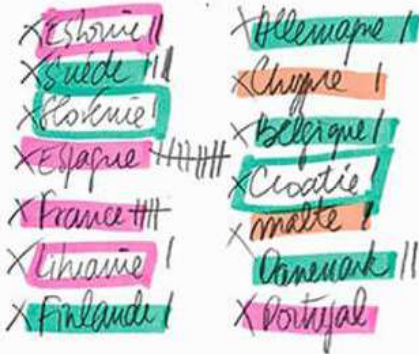 X Estonie ||
X Suède |||
X Slovénie |
X Espagne |||| ||||
X France ||||
X Lituanie |
X Finlande |
X Allemagne ||
X Chypre |
X Belgique |
X Croatie |
X malte |
Danemark ||
X Portugal